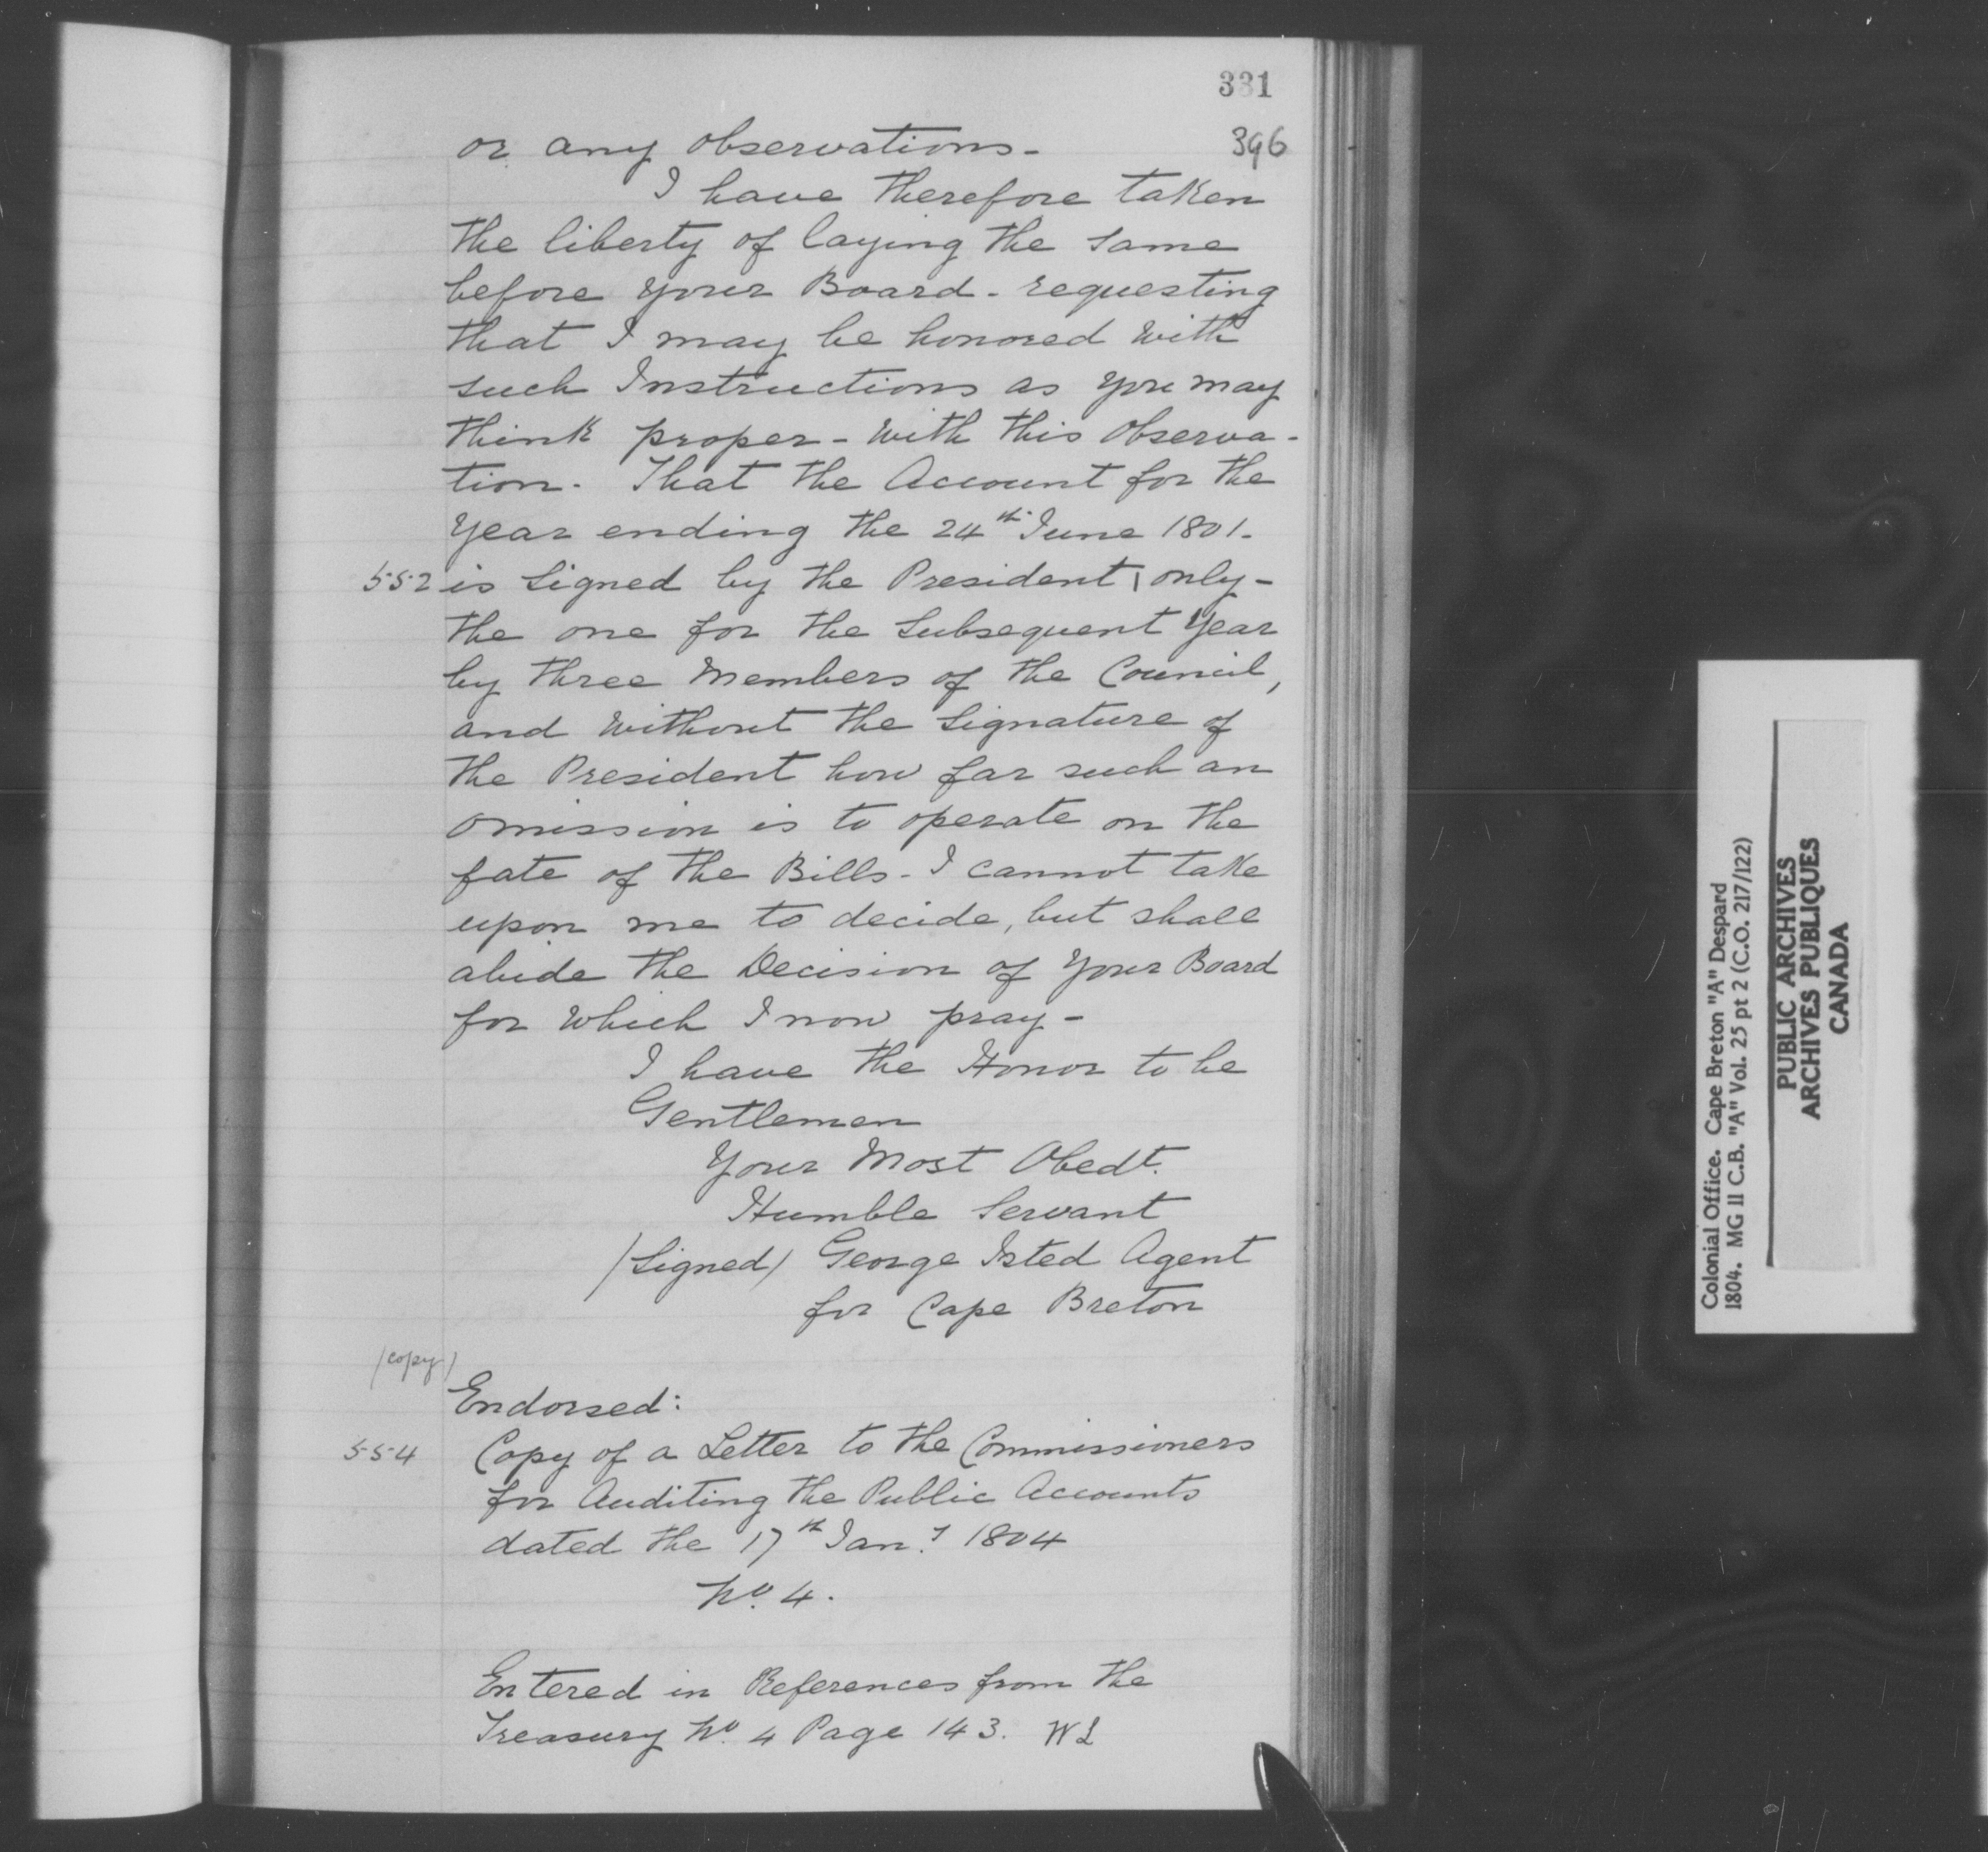 331
396
or any observations-
I have therefore taken
the liberty of laying the same
before your Board - requesting
that I may be honored with
such Instructions as you may
think proper - with this Observa-
tion. That the Account for the
Year ending the 24th June 1801.
552 is signed by the President | only-
the one for the subsequent Year
by three members of the Council,
and without the signature of
the President how far such an
omission is to operate on the
fate of the Bills - I cannot take
upon me to decide, but shall
abide the Decision of your Board
for which I now pray-
I have the Honor to be
Gentlemen
Your Most Obedt.
Humble Servant
/signed/ George Isted Agent
for Cape Breton
/copy/
Endorsed:
554 Copy of a Letter to the Commissioners
for Auditing the Public Accounts
dated the 17th Jan.y 1804
No. 4.
Entered in References from the
Treasury No. 4 Page 143. WL
Colonial Office. Cape Breton "A" Despard
1804. MG II C.B. "A" Vol. 25 pt 2 (C.O. 217/122)
PUBLIC ARCHIVES
ARCHIVES PUBLIQUES
CANADA